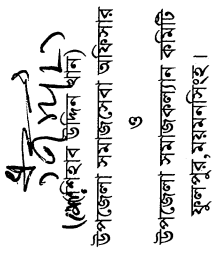 (মোঃ শিহাব উদ্দিন খান)
উপজেলা সমাজসেবা অফিসার
ও
উপজেলা সমাজকল্যান কমিটি
ফুলপুর,ময়মনসিংহ।